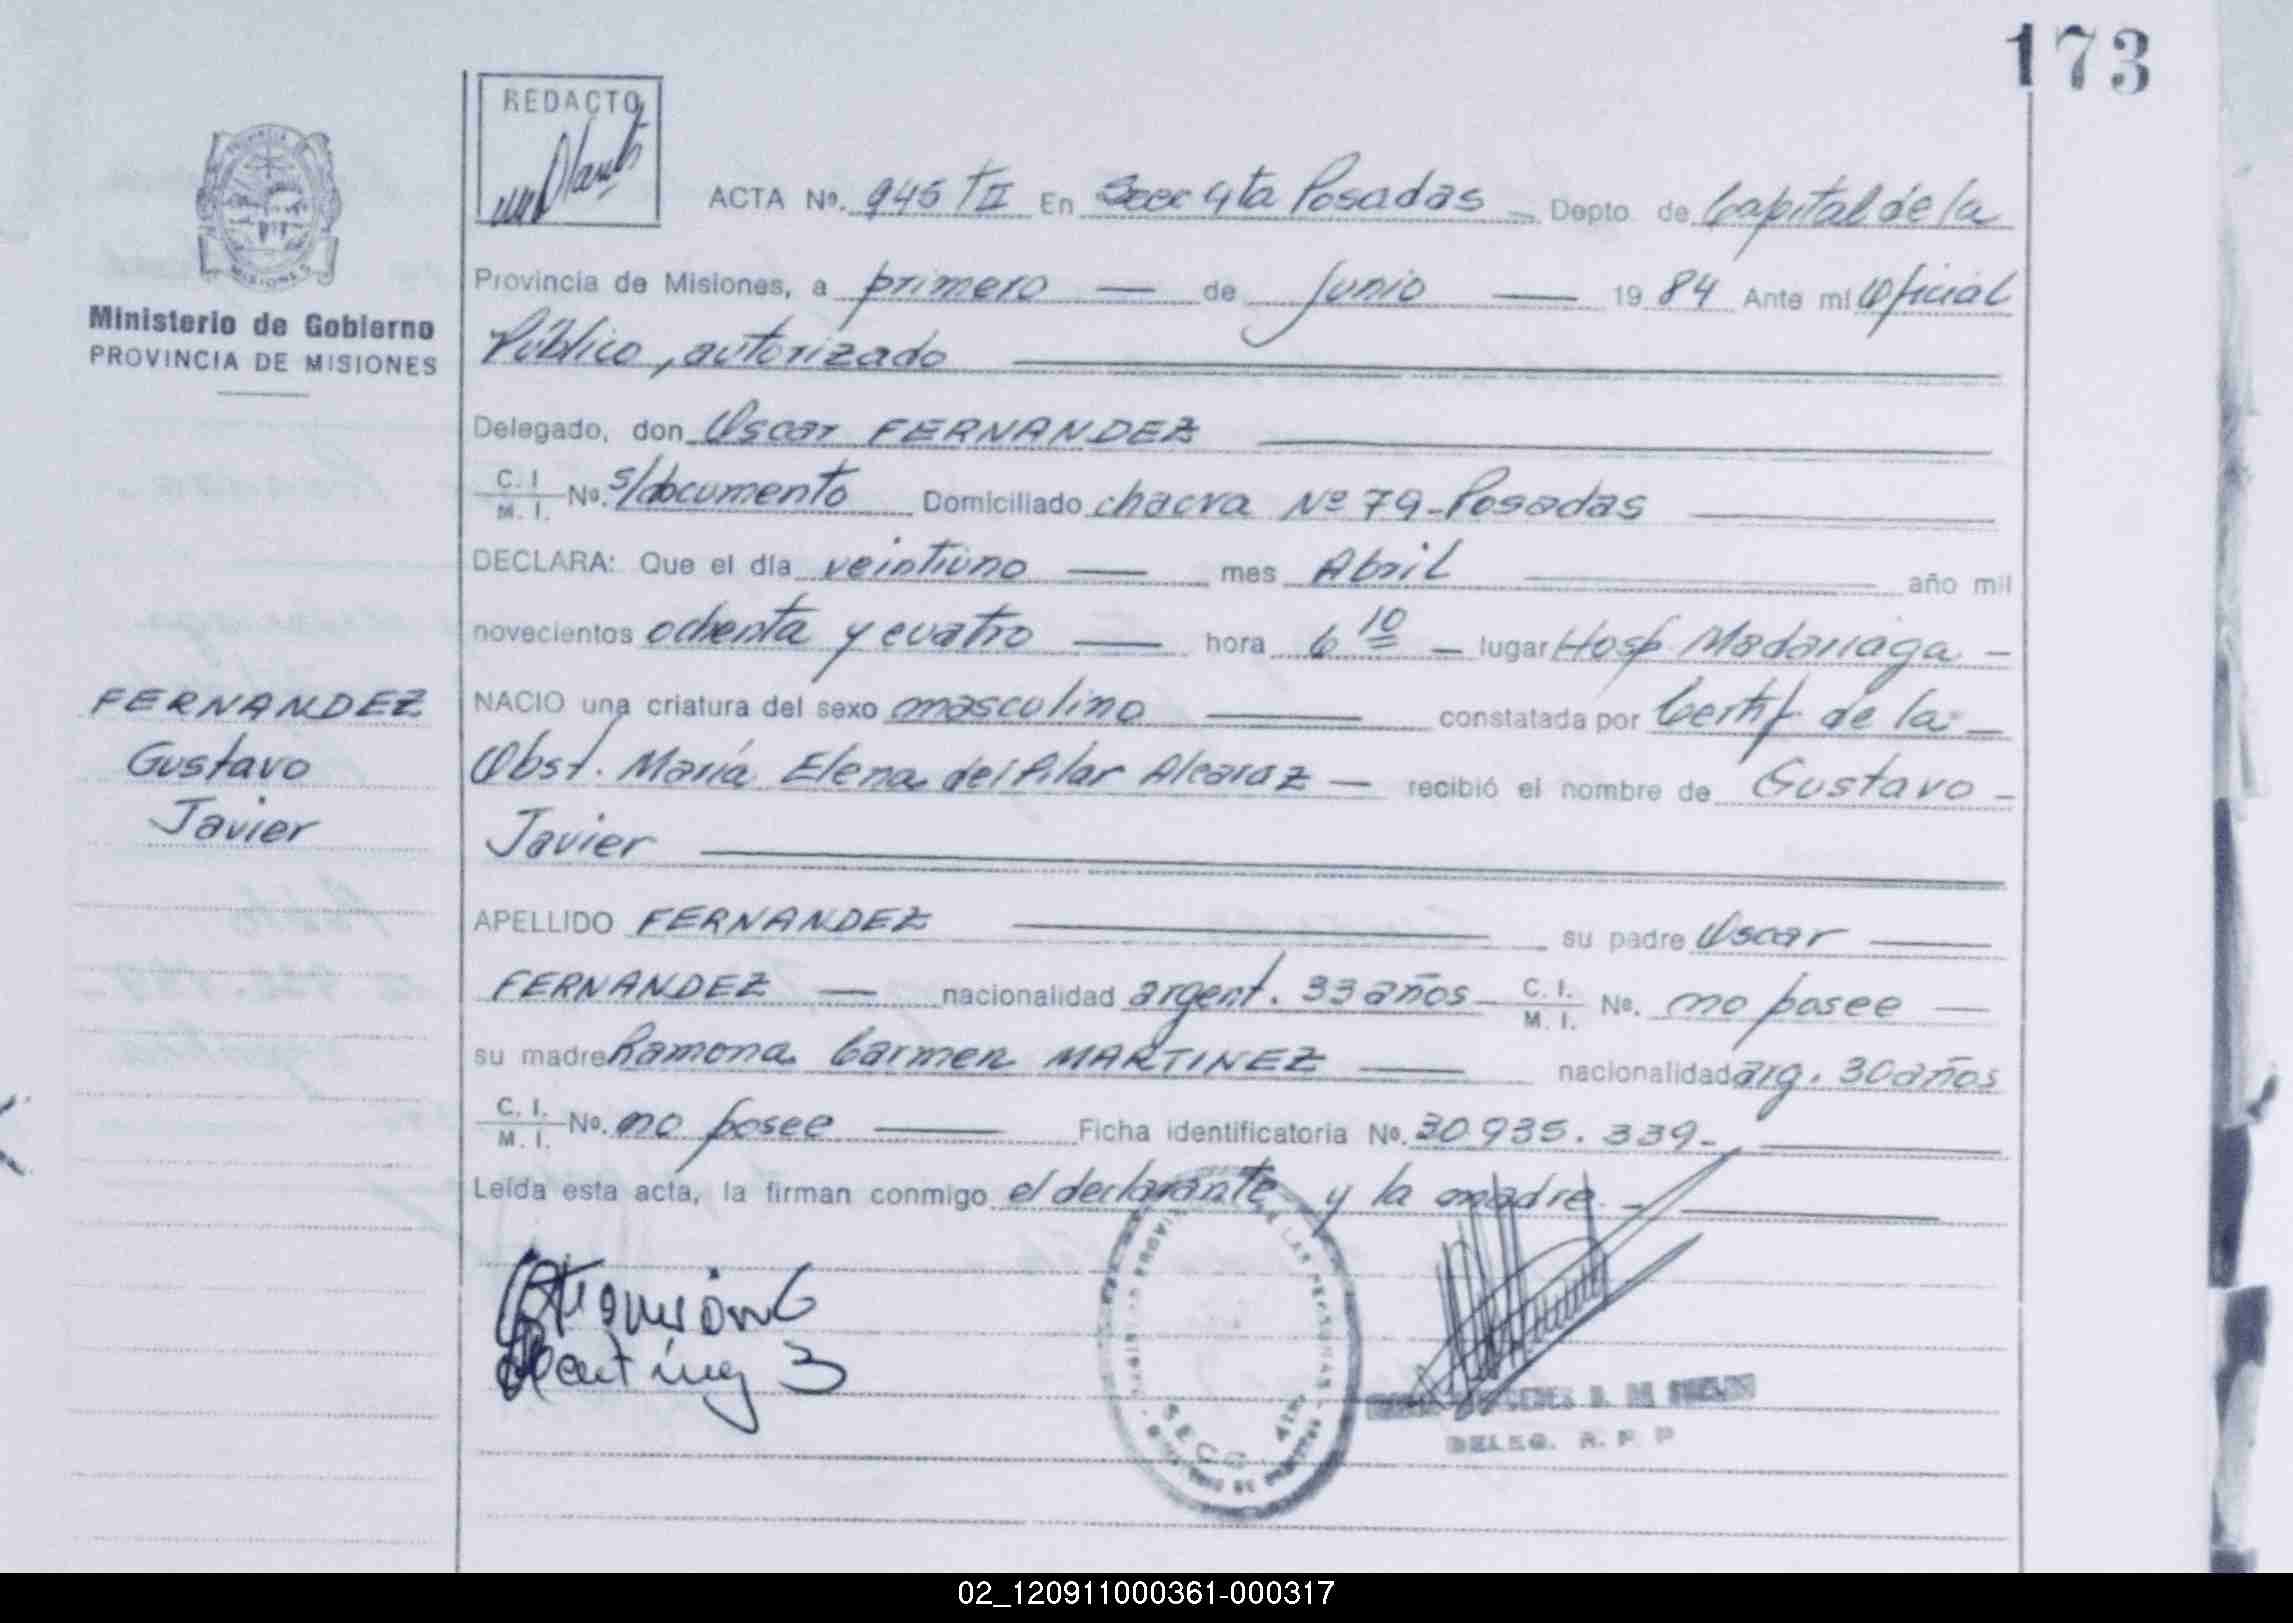 173
REDACTO
ACTA Nº. 945 TII En Secc 4ta Posadas Depto de Capital de la
Ministerio de Gobierno
PROVINCIA DE MISIONES
Provincia de Misiones, a primero — de Junio — 19 84 Ante mi Oficial
Público, autorizado
Delegado, don Oscar FERNANDEZ
C. I. M. I. No. s/documento Domiciliado chacra Nº 79 - Posadas
DECLARA: Que el día veintiuno — mes Abril año mil
novecientos ochenta y cuatro — hora 6 10 — lugar Hosp Madariaga —
FERNANDEZ
Gustavo
Javier
NACIO una criatura del sexo masculino — constatada por Certif de la —
Obst. María Elena del Pilar Alcaraz — recibió el nombre de Gustavo —
Javier
APELLIDO FERNANDEZ su padre Oscar
FERNANDEZ — nacionalidad argent. 33 años C. I. M. I. No. no posee —
su madre Ramona Carmen MARTINEZ — nacionalidad arg. 30 años
C. I. M. I. No. no posee — Ficha identificatoria No. 30.935.339.-
Leída esta acta, la firman conmigo el declarante y la madre.-
DE LAS PERSONAS
SECC 4ta
DELEG. R. P. P
02_120911000361-000317